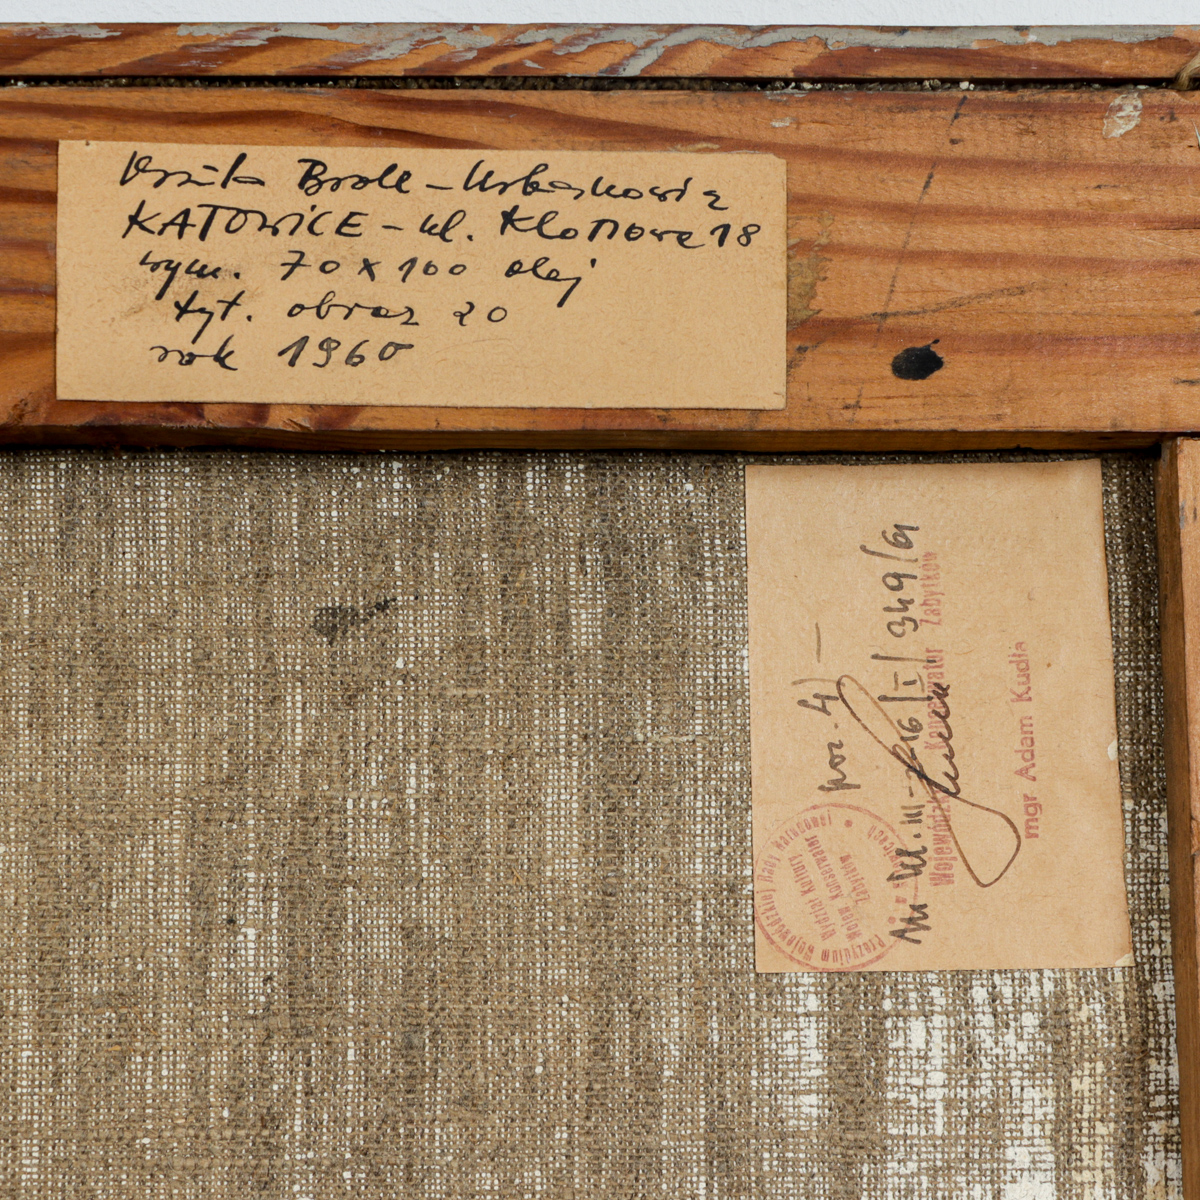 Urszula Broll - Urbanowicz
KATOWICE - ul. Klonowa 18
wym. 70 x 100 olej
tyt. obraz 20
rok 1960
poz. 4) —
Nr Kl. III - 16/I/349/61
Wojewódzki Konserwator Zabytków
mgr Adam Kudła
Prezydium Wojewódzkiej Rady Narodowej
Wydział Kultury
Wojew. Konserwator
Zabytków